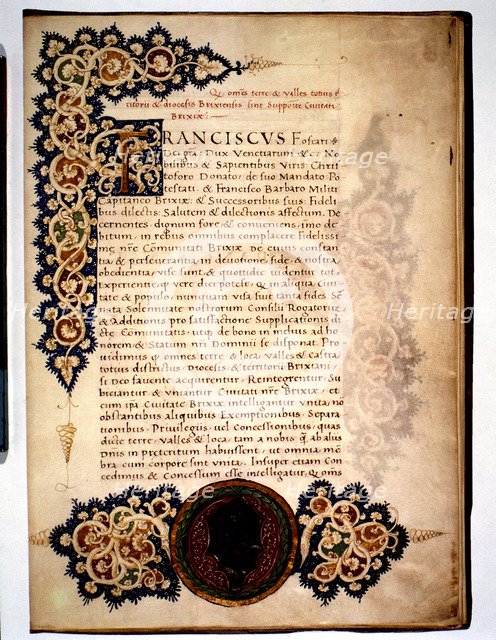 Q; omēs terre & valles totius
ritorii & diocesis Brixiensis sint Supposite Civitati
BRIXIE:
FRANCISCVS Foscari &
Dei gra: Dux Venetiarum & cȝ No
bilibus & Sapientibus Viris Chris
toforo Donato de suo Mandato Po
testati & Francisco Barbaro Militi
Capitaneo Brixie & Successoribus suis: Fideli
bus dilectis Salutem & dilectionis affectum. De
cernentes dignum fore & conveniens, imo de
bitum, in rebus omnibus complacere Fidelissi
me nr̄e Comunitati Brixie De cuius constan
tia & perseverantia in devotione fide & nostra
obedientia vise sunt & quottidie videntur tote
Experientie, q vere dici potest: q in aliqua Civi
tate & populo nunquam visa fuit tanta fides Se
nata Solemnitate nostrorum Consilii Rogatorum
& Additionis pro satisfactione Supplicationis di
cte Comunitatis, utq de bono in melius ad ho
norem & Statum nr̄i Dominii se disponat. Pro
vidimus q omnes terre & loca, valles & castra
totius districtus, Diocesis & territorii Brixiani
si Deo favente acquirentur, Reintegrentur, Su
biciantur & uniantur Civitati nr̄e Brixie, et
cum ipa Civitate Brixie intelligantur unita, no
obstantibus aliquibus Exemptionibus Separa
tionibus, Privilegiis, vel Concessionibus, quas
dicte terre, valles & loca, tam a nobis q ab aliis
Dnis in preteritum habuissent, ut omnia mē
bra cum corpore sint unita. Insuper etiam Con
cedimus & Concessum esse intelligatur, Q; omēs
Heritage